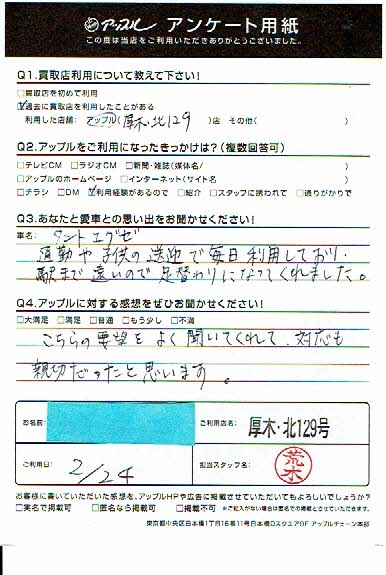 アップル アンケート用紙
この度は当店をご利用いただきありがとうございました。
Q1.買取店利用について教えて下さい!
□買取店を初めて利用
☑過去に買取店を利用したことがある
利用した店舗: アップル(厚木・北129)店 その他( )
Q2.アップルをご利用になったきっかけは?(複数回答可)
□テレビCM □ラジオCM □新聞・雑誌(媒体名/ )
□アップルのホームページ □インターネット(サイト名 )
□チラシ □DM ☑利用経験があるので □紹介 □スタッフに誘われて □通りがかりで
Q3.あなたと愛車との思い出をお聞かせください!
車名: タントエグゼ
通勤や子供の送迎で毎日利用しており、
駅まで遠いので足替わりになってくれました。
Q4.アップルに対する感想をぜひお聞かせください!
□大満足 □満足 □普通 □もう少し □不満
こちらの要望をよく聞いてくれて、対応も
親切だったと思います。
お名前:
ご利用店名: 厚木・北129号
ご利用日: 2/24
担当スタッフ名: 荒木
お客様に書いていただいた感想を、アップルHPや広告に掲載させていただいてもよろしいでしょうか?
□実名で掲載可 □匿名なら掲載可 □掲載不可 ※ご記入がない場合は匿名での掲載とさせていただきます。
東京都中央区日本橋1丁目16番11号日本橋Dスクエア9F アップルチェーン本部